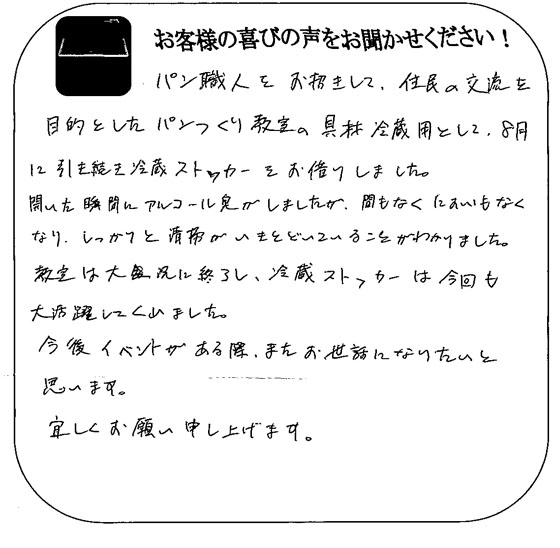 お客様の喜びの声をお聞かせください！
パン職人をお招きして、住民の交流を
目的としたパンつくり教室の具材冷蔵用として、8月
に引き続き冷蔵ストッカーをお借りしました。
開いた瞬間にアルコール臭がしましたが、間もなくにおいもなく
なり、しっかりと清掃がいきとどいていることがわかりました。
教室は大盛況に終了し、冷蔵ストッカーは今回も
大活躍してくれました。
今後イベントがある際、またお世話になりたいと
思います。
宜しくお願い申し上げます。